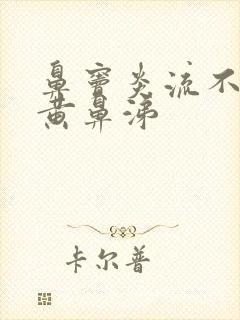 鼻窦炎流不
黄鼻涕
卡尔普